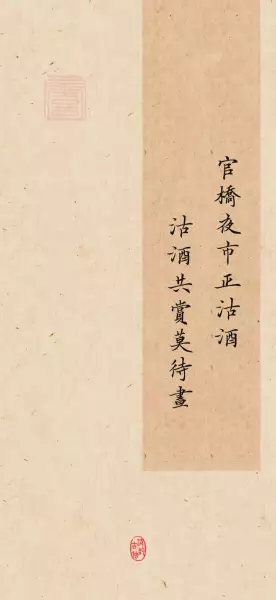 官橋夜市正沽酒
沽酒共賞莫待晝